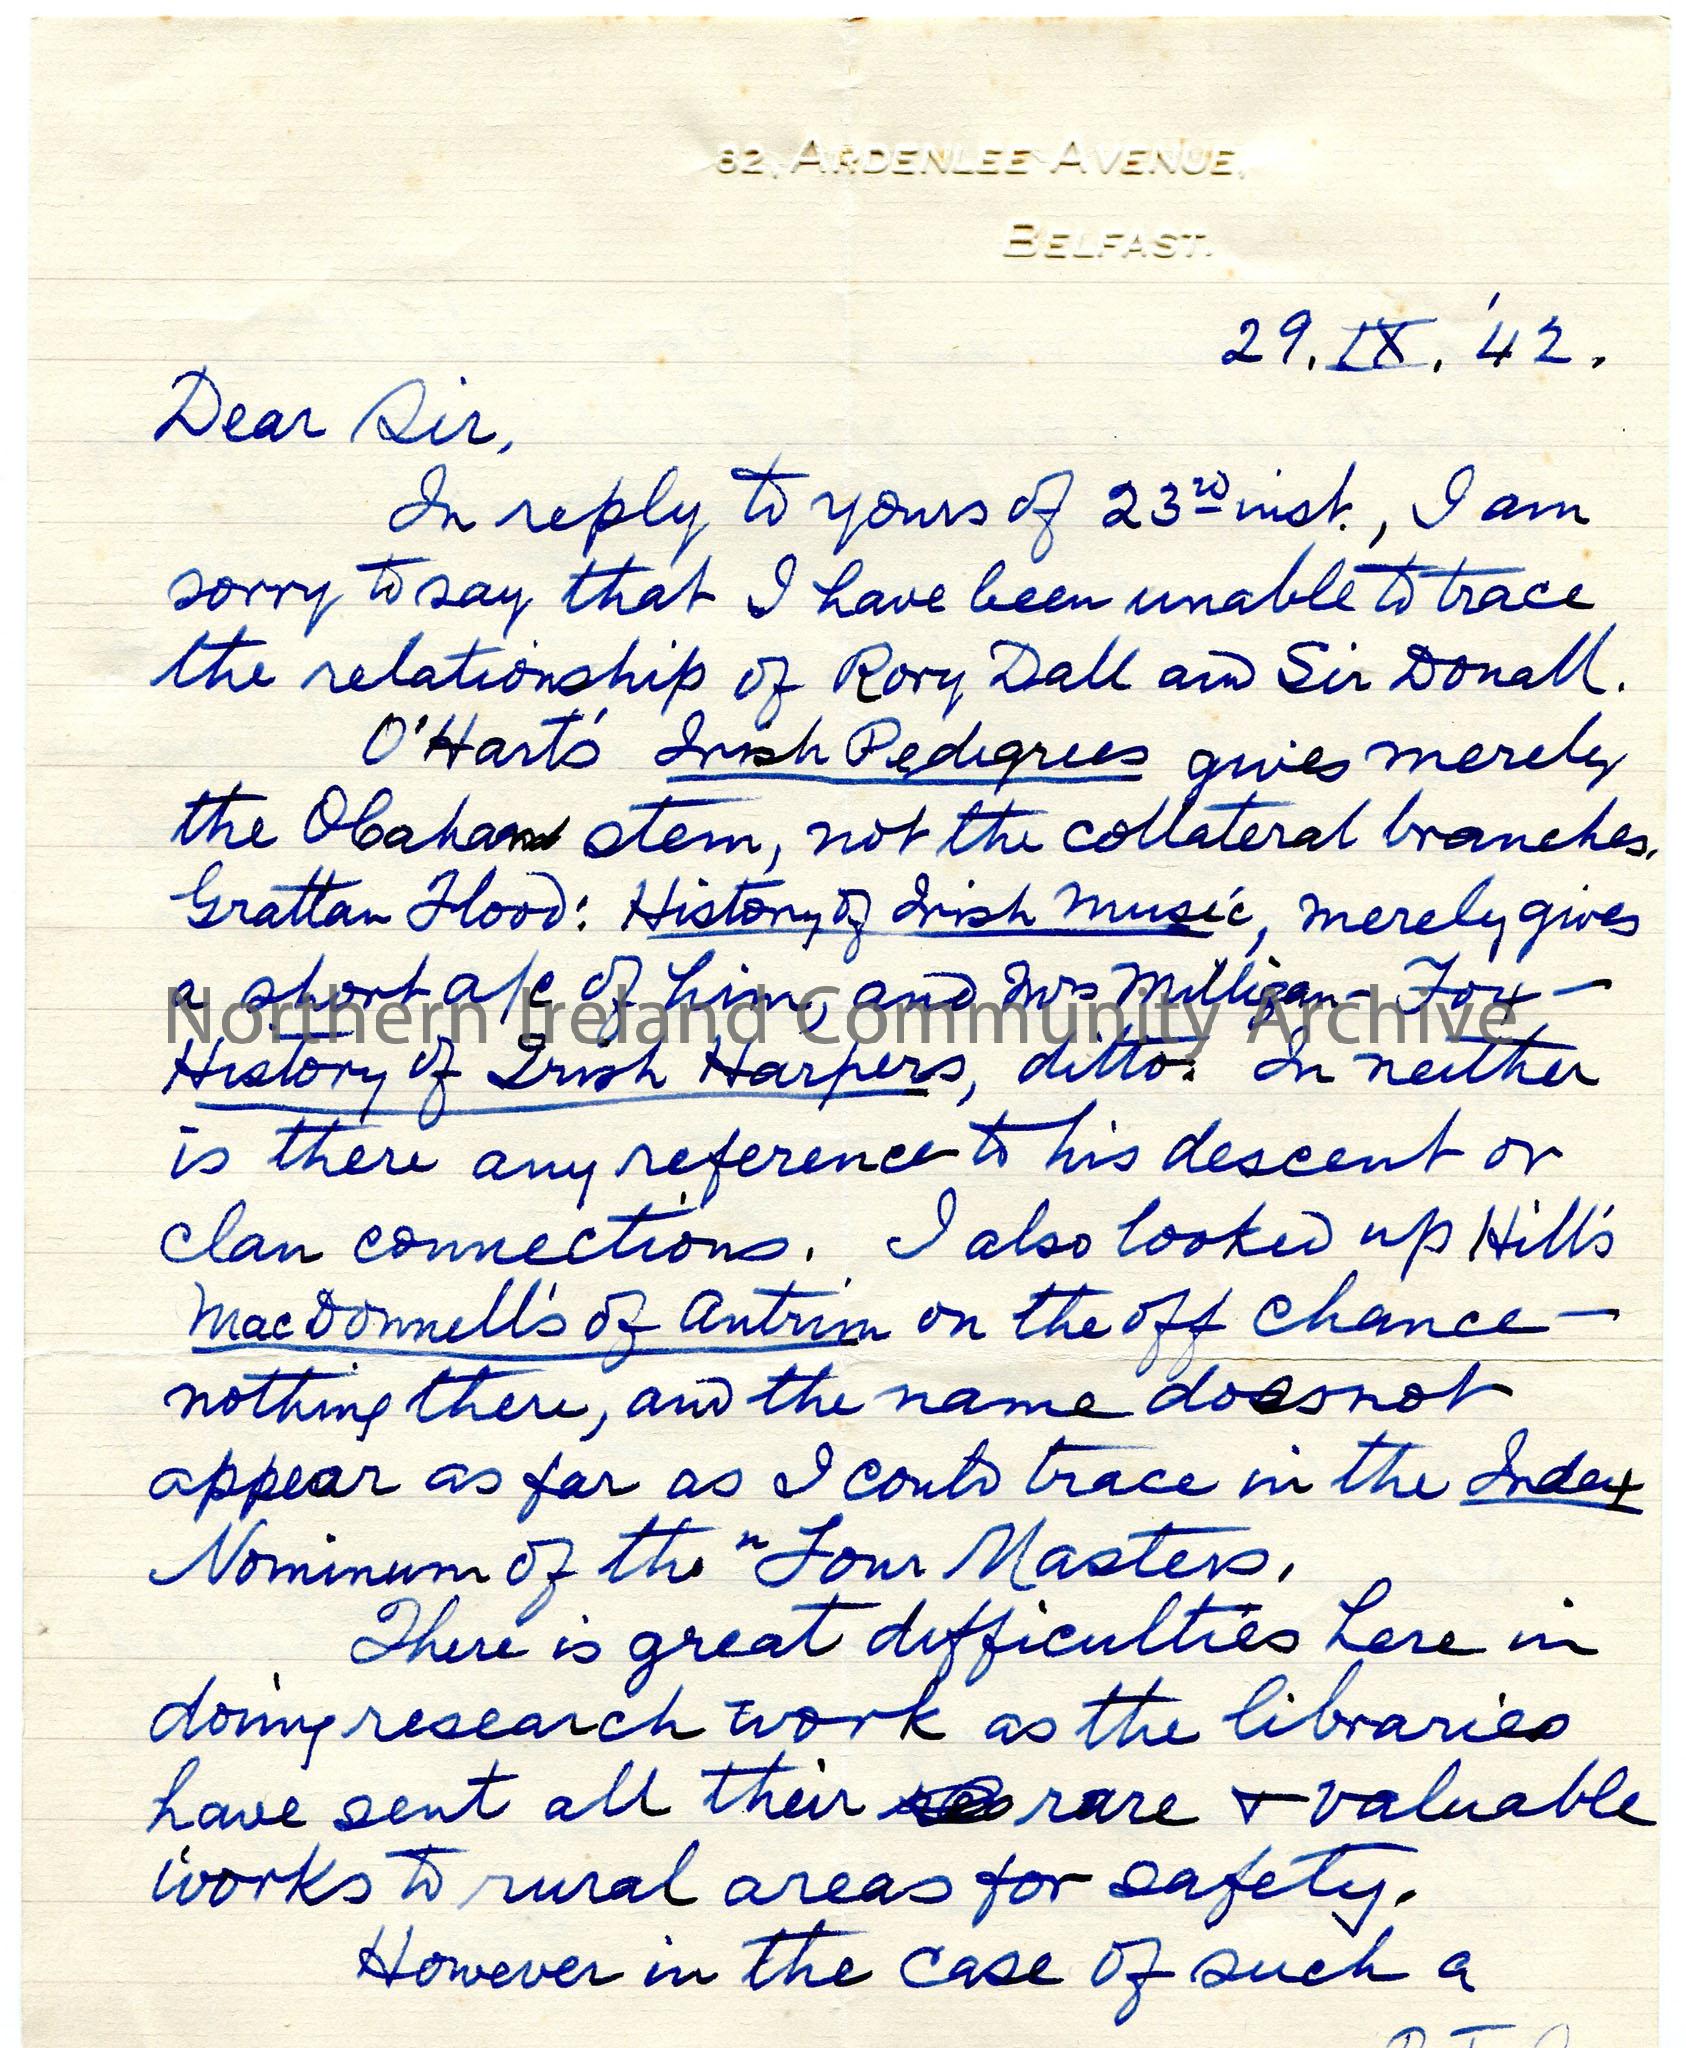 82, ARDENLEE AVENUE,
BELFAST.
29. IX. '42.
Dear Sir,
In reply to yours of 23rd inst., I am
sorry to say that I have been unable to trace
the relationship of Rory Dall and Sir Donall.
O'Hart's Irish Pedigrees gives merely
the OCahan stem, not the collateral branches.
Grattan Flood: History of Irish Music, merely gives
a short a/c of him, and Mrs Milligan-Fox-
Northern Ireland Community Archive
History of Irish Harpers, ditto. In neither
is there any reference to his descent or
clan connections. I also looked up Hill's
MacDonnell's of Antrim on the off chance—
nothing there, and the name does not
appear as far as I could trace in the Index
Nominum of the "Four Masters.
There is great difficulties here in
doing research work as the libraries
have sent all their rare & valuable
works to rural areas for safety.
However in the case of such a